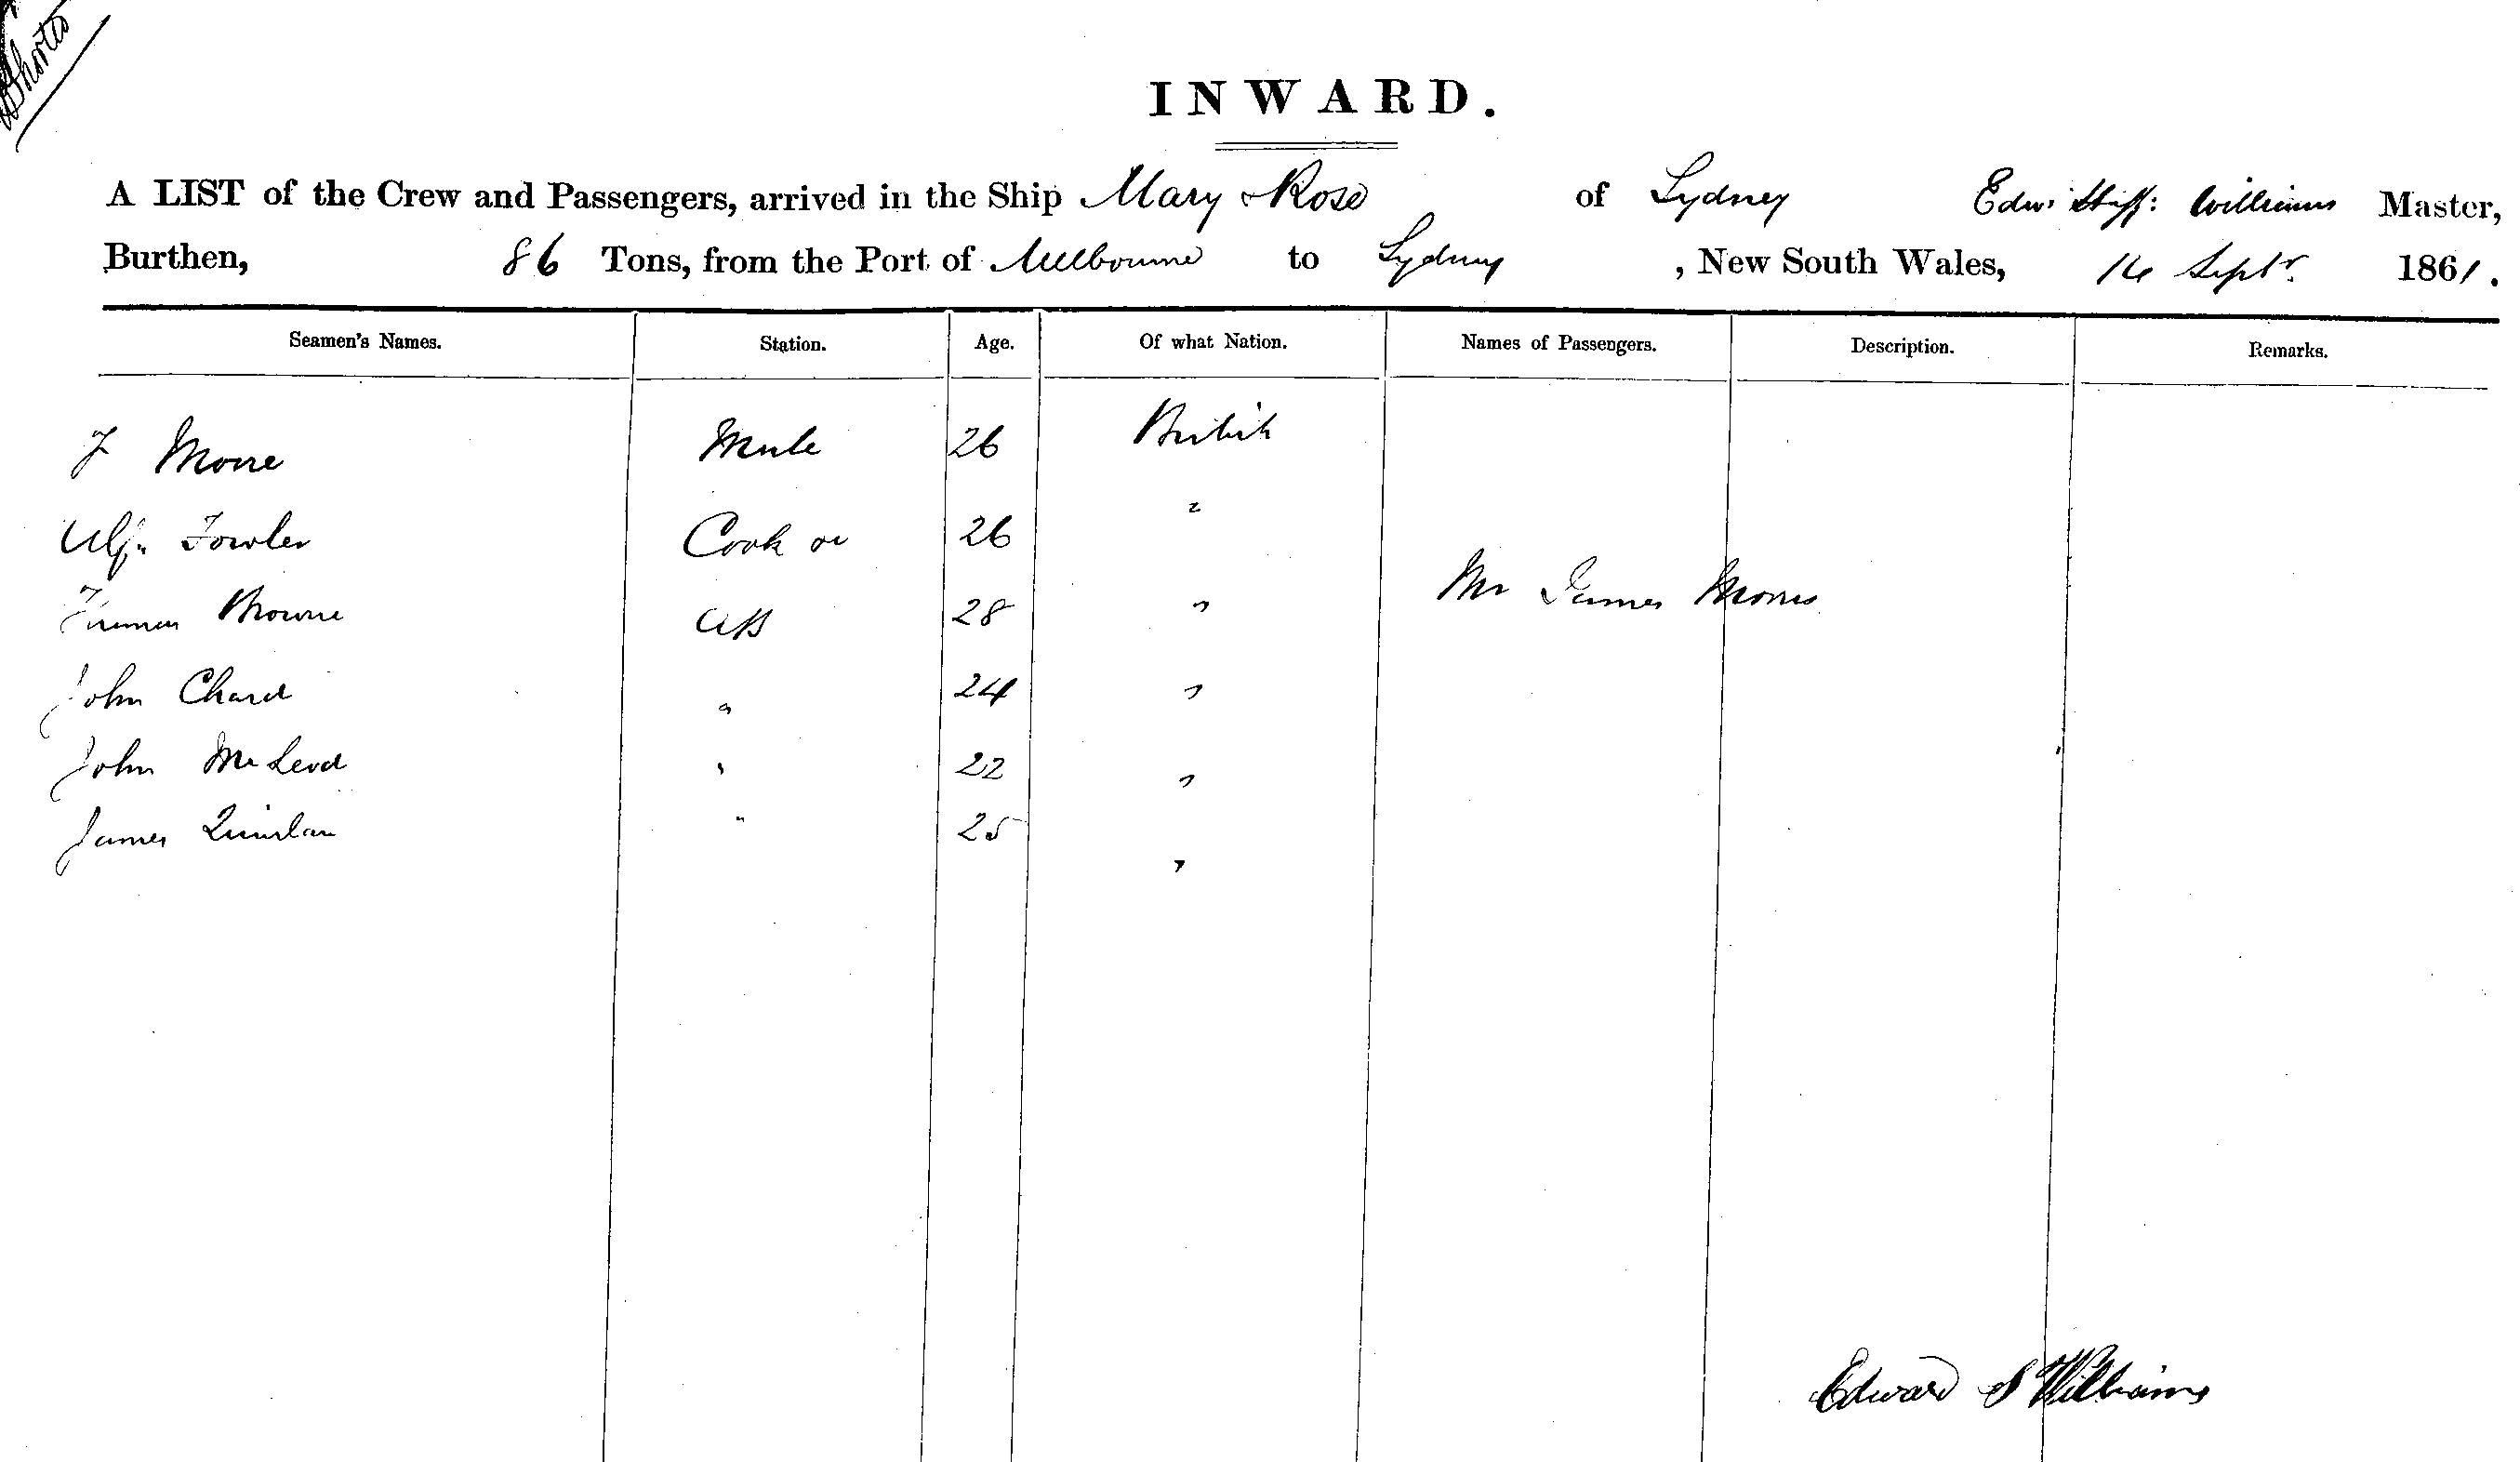 INWARD.
A LIST of the Crew and Passengers, arrived in the Ship Mary Rose of Sydney Edw. Williams Master,
Burthen, 86 Tons, from the Port of Melbourne to Sydney, New South Wales, 14 Septr. 1861.
Seamen's Names. Station. Age. Of what Nation. Names of Passengers. Description. Remarks.
J Moore Mate 26 British
Alf. Fowler Cook 26 "
Browne AB 28 " Mr James
John Chard " 24 "
John McLeod " 22 "
James Quinlan " 25 "
Edward S Williams